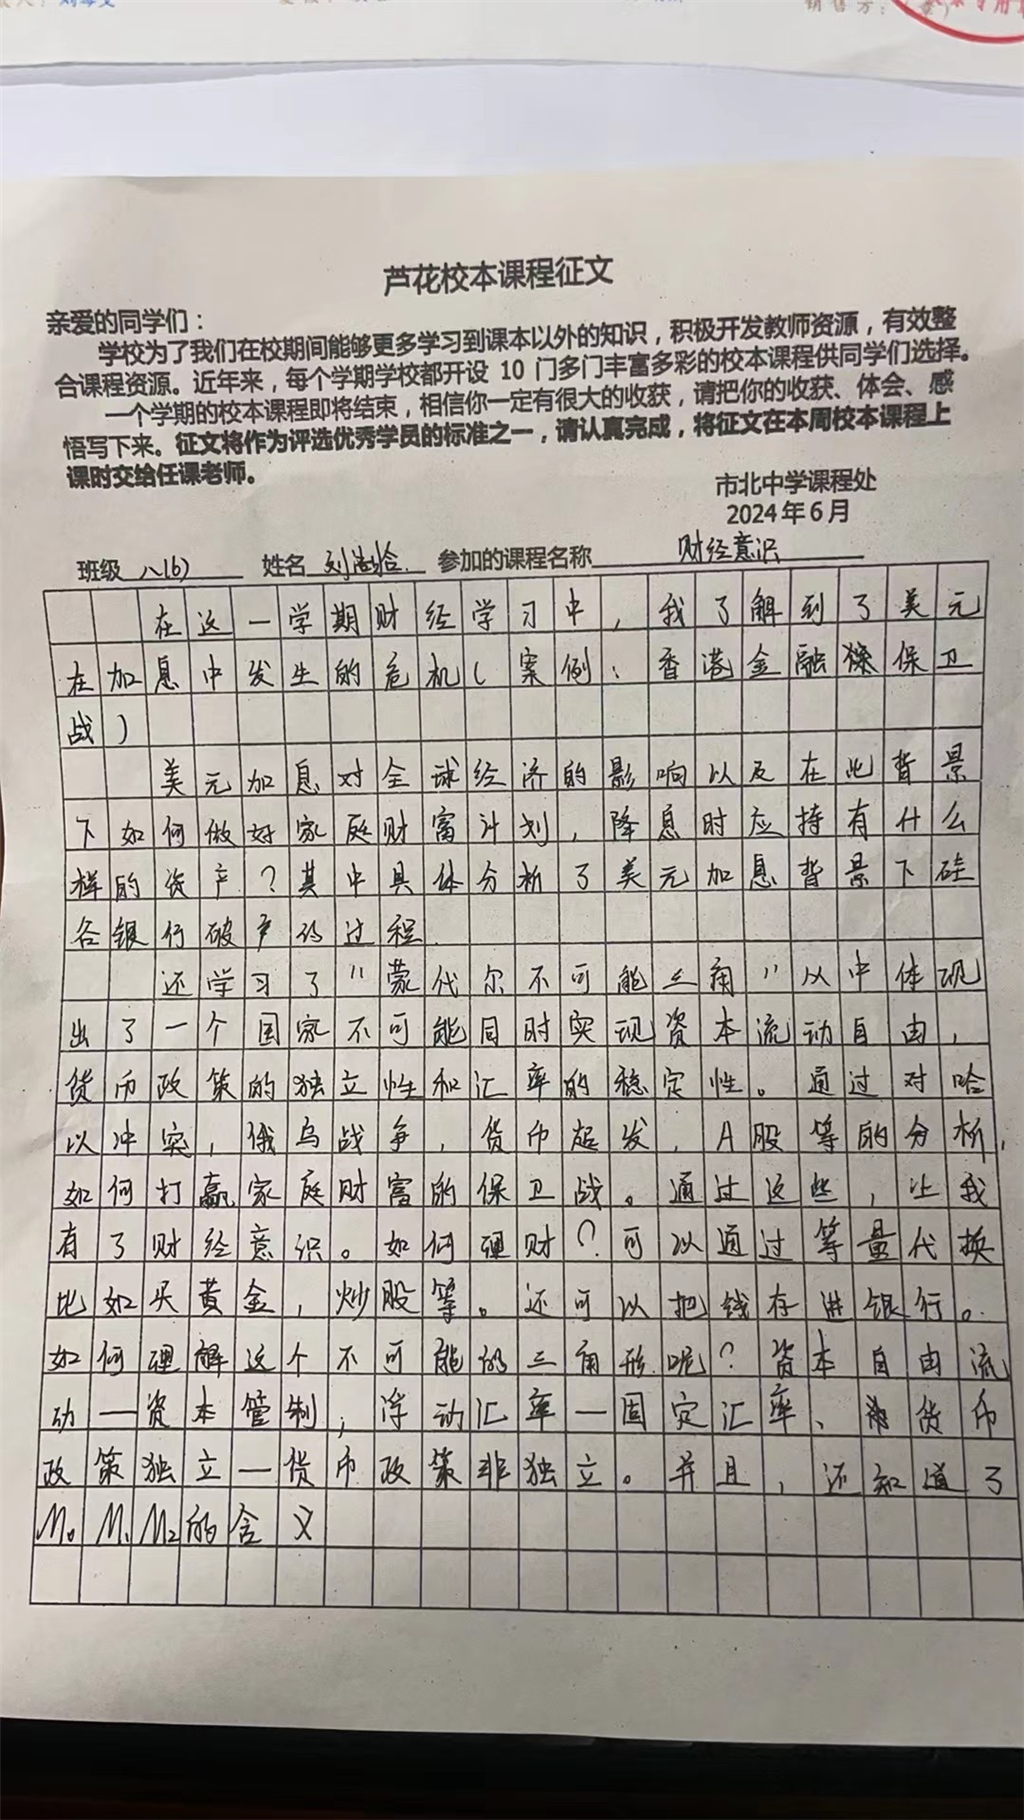 销售方：(章)
芦花校本课程征文
亲爱的同学们：
学校为了我们在校期间能够更多学习到课本以外的知识，积极开发教师资源，有效整
合课程资源。近年来，每个学期学校都开设 10 门多门丰富多彩的校本课程供同学们选择。
一个学期的校本课程即将结束，相信你一定有很大的收获，请把你的收获、体会、感
悟写下来。征文将作为评选优秀学员的标准之一，请认真完成，将征文在本周校本课程上
课时交给任课老师。
市北中学课程处
2024 年 6 月
班级 八(6) 姓名 刘 参加的课程名称 财经意识
在这一学期财经学习中，我了解到了美元
在加息中发生的危机(案例：香港金融保卫
战)
美元加息对全球经济的影响以及在此背景
下如何做好家庭财富计划，降息时应持有什么
样的货产？其中具体分析了美元加息背景下硅
谷银行破产的过程
还学习了"蒙代尔不可能三角"以中体现
出了一个国家不可能同时实现资本流动自由，
货币政策的独立性和汇率的稳定性。通过对哈
以冲突，俄乌战争，货币超发，A股等的分析，
如何打赢家庭财富的保卫战。通过这些，让我
有了财经意识。如何理财？可以通过等量代换
比如买黄金，炒股等。还可以把钱存进银行。
如何理解这个不可能的三角形呢？资本自由流
动—资本管制，浮动汇率—固定汇率、货币
政策独立—货币政策非独立。并且，还知道了
M₀ M₁ M₂的含义